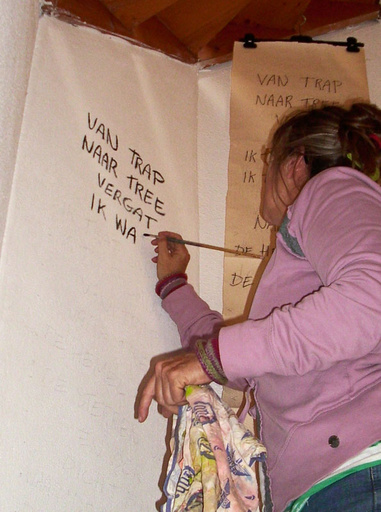 VAN TRAP
NAAR TREE
VERGAT
IK WA
VAN TRAP
NAAR TREE
IK
IK
DE
DE